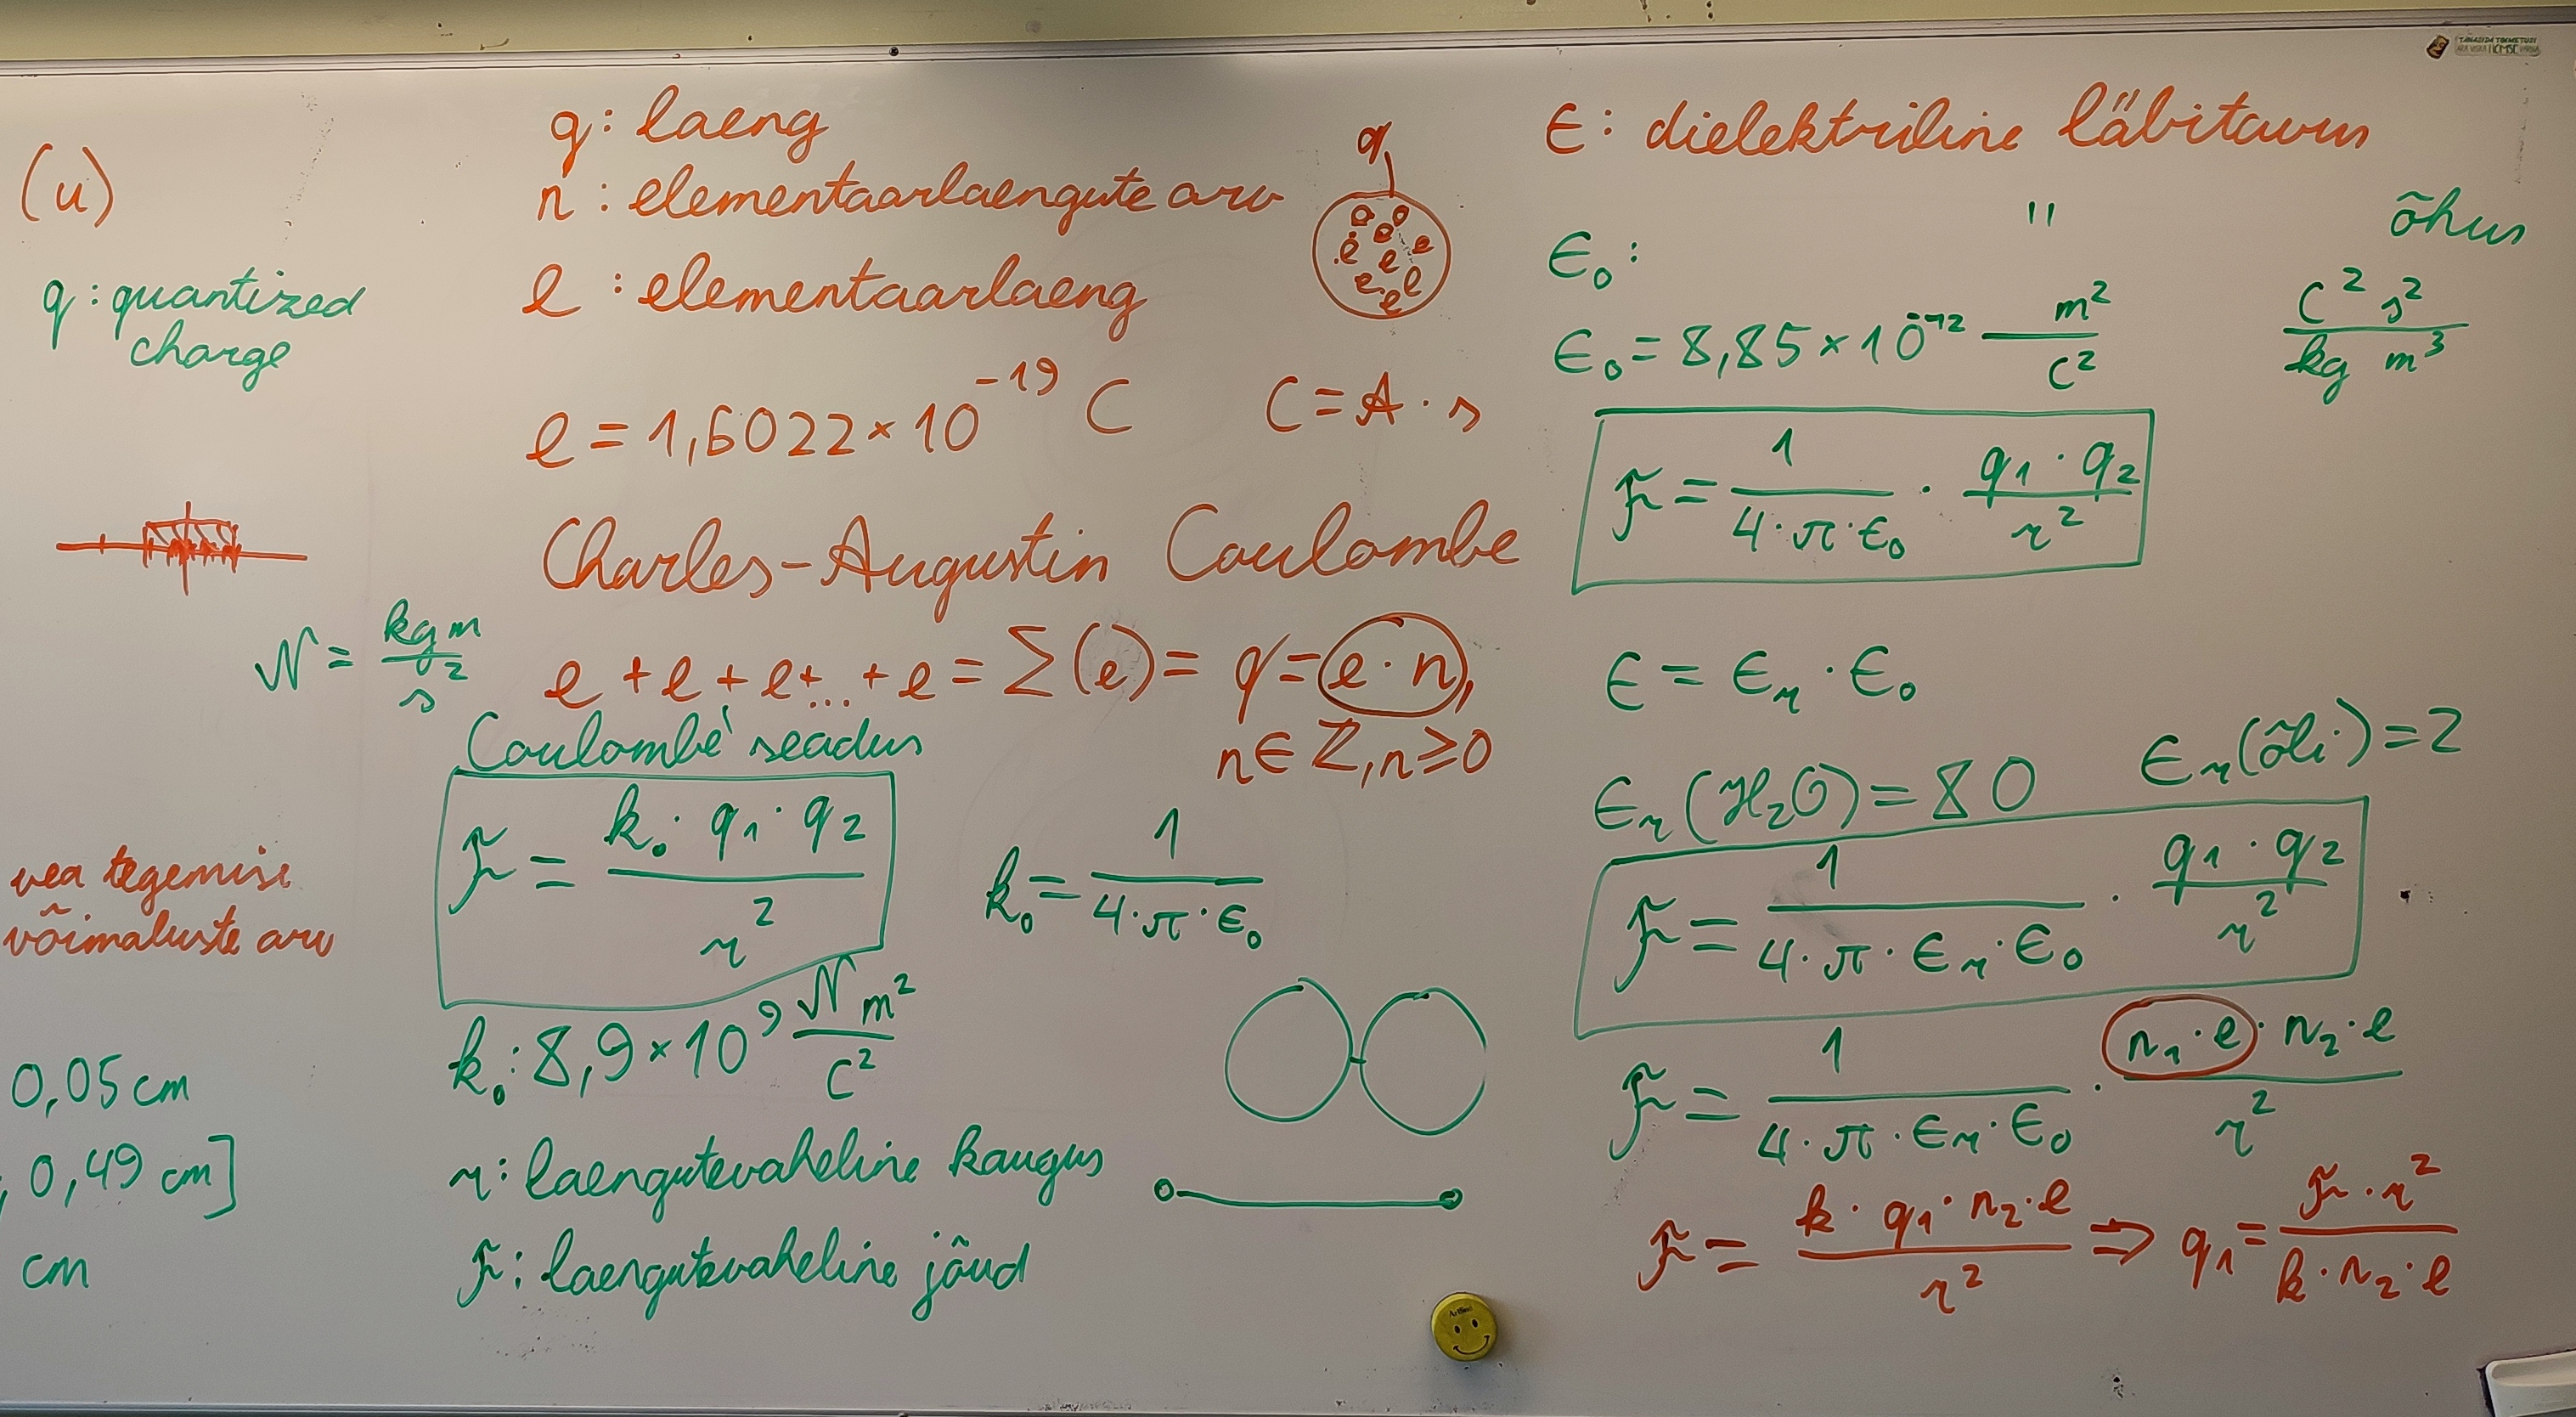 (u)
q: quantized
charge
N = kg m / s²
vea tegemise
võimaluste arv
0,05 cm
; 0,49 cm]
cm
q: laeng
n: elementaarlaengute arv
e: elementaarlaeng
q
e e e e e e e e
e = 1,6022×10⁻¹⁹ C C = A · s
Charles-Augustin Coulombe
e + e + e + ... + e = Σ(e) = q = e · n,
n ∈ ℤ, n ≥ 0
Coulombe' seadus
F = k₀ · q₁ · q₂ / r²
k₀ = 1 / 4·π·ε₀
k₀: 8,9×10⁹ N m² / C²
r: laengutevaheline kaugus
F: laengutevaheline jõud
ε: dielektriline läbitavus
ε₀: " õhus
ε₀ = 8,85×10⁻¹² m² / C² C² s² / kg m³
F = 1 / 4·π·ε₀ · q₁·q₂ / r²
ε = εᵣ · ε₀
εᵣ(H₂O) = 80 εᵣ(õli) = 2
F = 1 / 4·π·εᵣ·ε₀ · q₁·q₂ / r²
F = 1 / 4·π·εᵣ·ε₀ · n₁·e·n₂·e / r²
F = k·q₁·n₂·e / r² ⇒ q₁ = F·r² / k·n₂·e